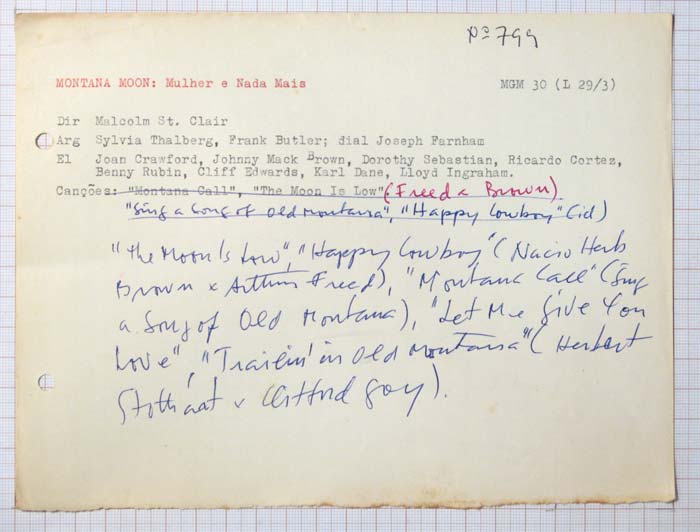 Nº 799
MONTANA MOON: Mulher e Nada Mais MGM 30 (L 29/3)
Dir Malcolm St. Clair
Arg Sylvia Thalberg, Frank Butler; dial Joseph Farnham
El Joan Crawford, Johnny Mack Brown, Dorothy Sebastian, Ricardo Cortez,
Benny Rubin, Cliff Edwards, Karl Dane, Lloyd Ingraham.
Canções: "Montana Call", "The Moon Is Low" (Freed & Brown)
"Sing a Song of Old Montana", "Happy Cowboy" (id)
"The Moon Is Low", "Happy Cowboy" (Nacio Herb
Brown x Arthur Freed), "Montana Call" (Sing
a Song of Old Montana), "Let Me Give You
Love", "Trailin' in Old Montana" (Herbert
Stothart x Clifford Grey).